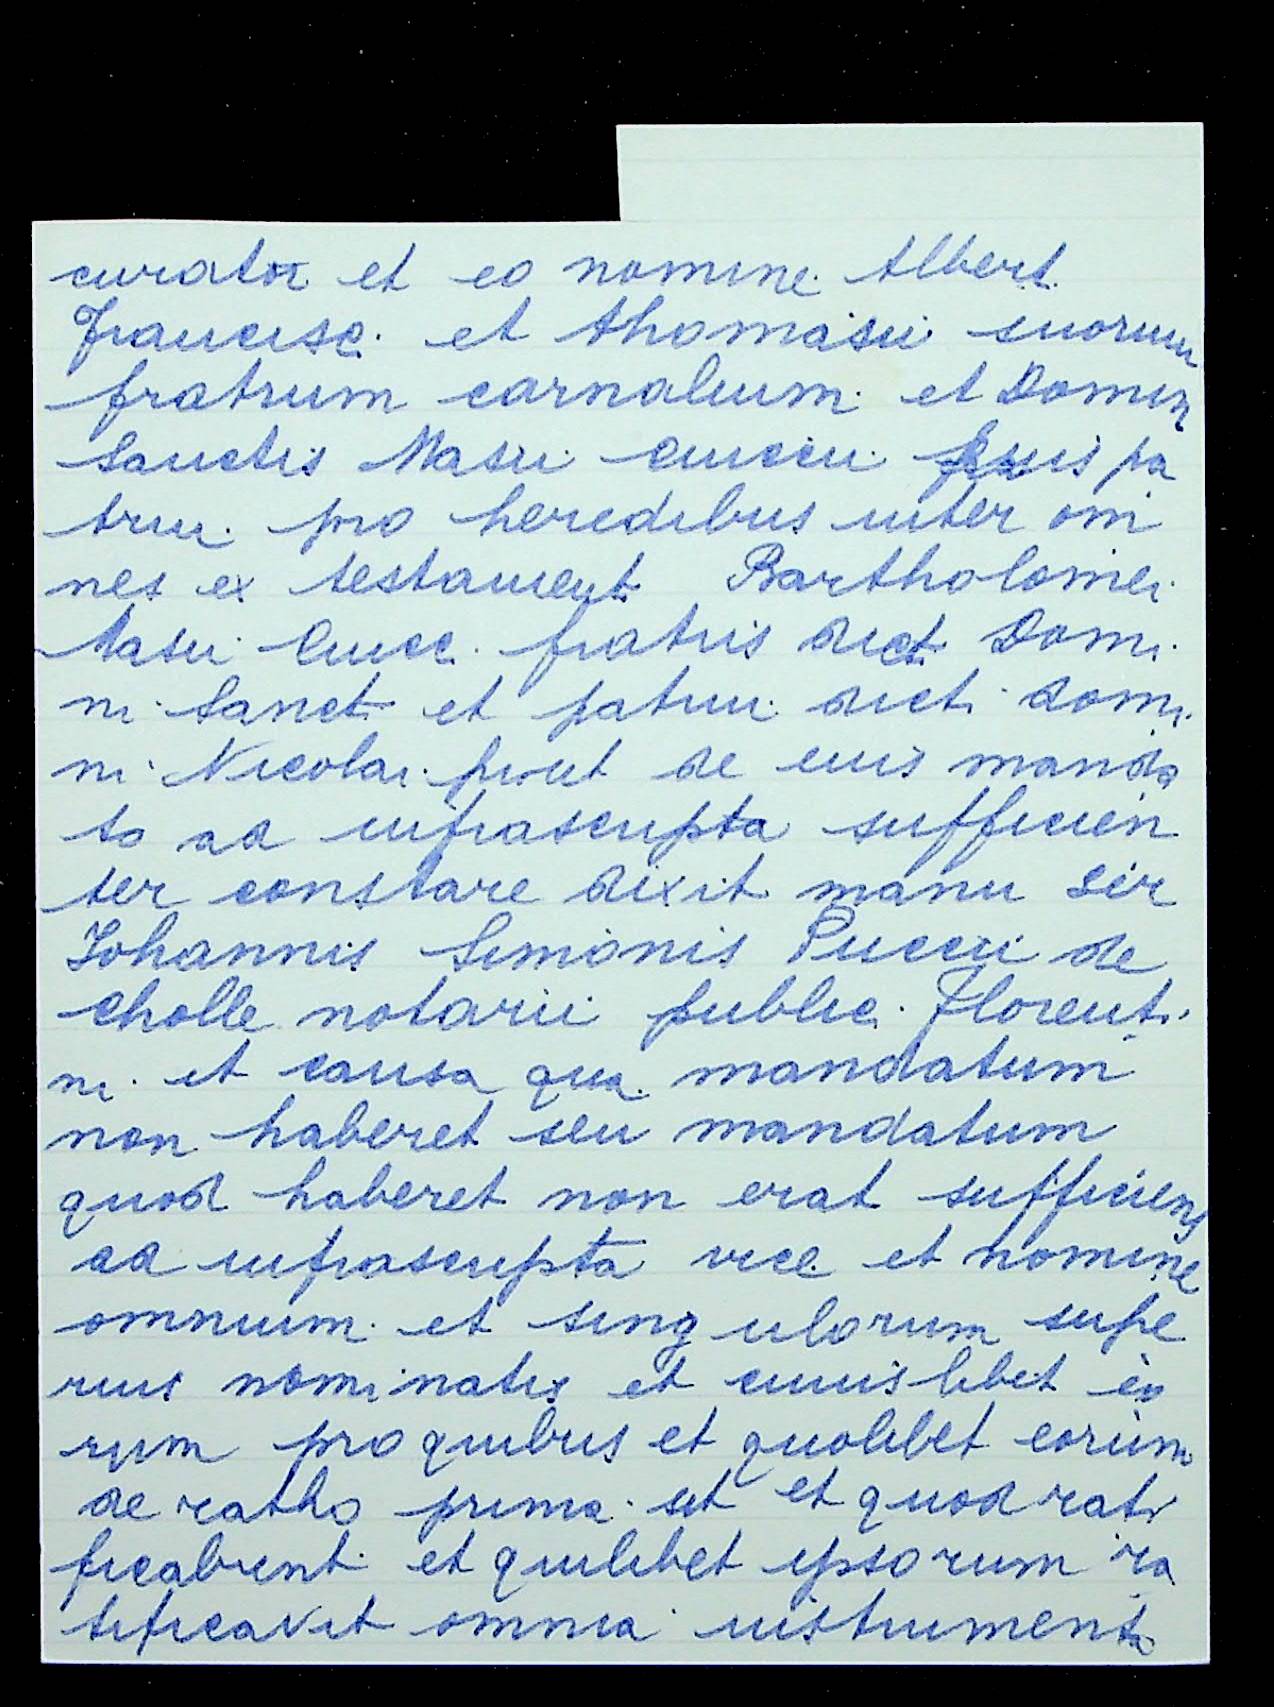 curator et eo nomine Albert
Francisc. et thomasii suorum
fratrum carnalium et Domin
Sanctis Masii Cuccii suis pa
truu. pro heredibus inter om
nes ex testament Bartholomei
Masii Cucc. fratris dict Domi
ni Sanct et patrui dicti domi
ni Nicolai prout de eius manda
to ad infrascripta sufficien
ter constare dixit manu Ser
Johannis Simonis Puccii de
Cholle notarii public. Florenti
ni. et causa qua mandatum
non haberet seu mandatum
quod haberet non erat sufficiens
ad infrascripta vice et nomine
omnium et singulorum supe
rius nominatis et cuiuslibet eo
rum pro quibus et quolibet eorum
de ratho prima sit et quod rati
ficabunt et quilibet ipsorum ra
tificavit omnia instrumenta